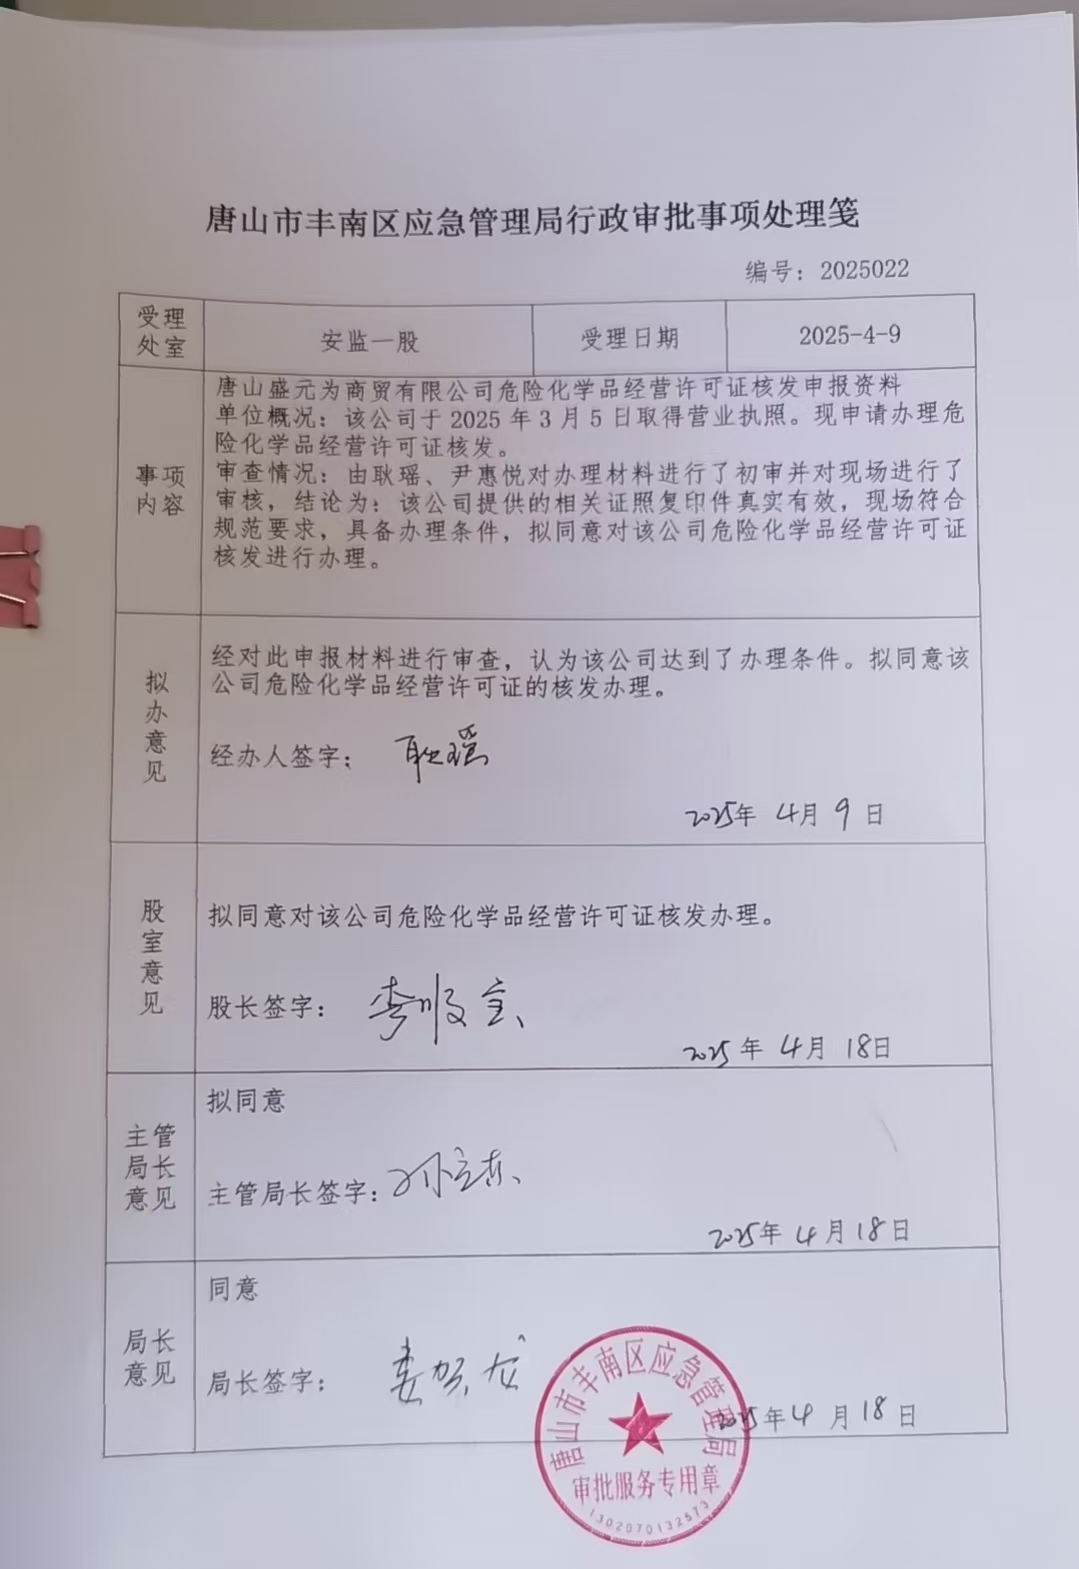 唐山市丰南区应急管理局行政审批事项处理笺
编号：2025022
受理处室
安监一股
受理日期
2025-4-9
事项内容
唐山盛元为商贸有限公司危险化学品经营许可证核发申报资料
单位概况：该公司于 2025 年 3 月 5 日取得营业执照。现申请办理危
险化学品经营许可证核发。
审查情况：由耿瑶、尹惠悦对办理材料进行了初审并对现场进行了
审核，结论为：该公司提供的相关证照复印件真实有效，现场符合
规范要求，具备办理条件，拟同意对该公司危险化学品经营许可证
核发进行办理。
拟办意见
经对此申报材料进行审查，认为该公司达到了办理条件。拟同意该
公司危险化学品经营许可证的核发办理。
经办人签字：耿瑶
2025年 4月 9 日
股室意见
拟同意对该公司危险化学品经营许可证核发办理。
股长签字：李顺
2025年 4月 18日
主管局长意见
拟同意
主管局长签字：孙立东
2025年 4月 18日
局长意见
同意
局长签字：
2025年4月18日
唐山市丰南区应急管理局
审批服务专用章
1302070132573